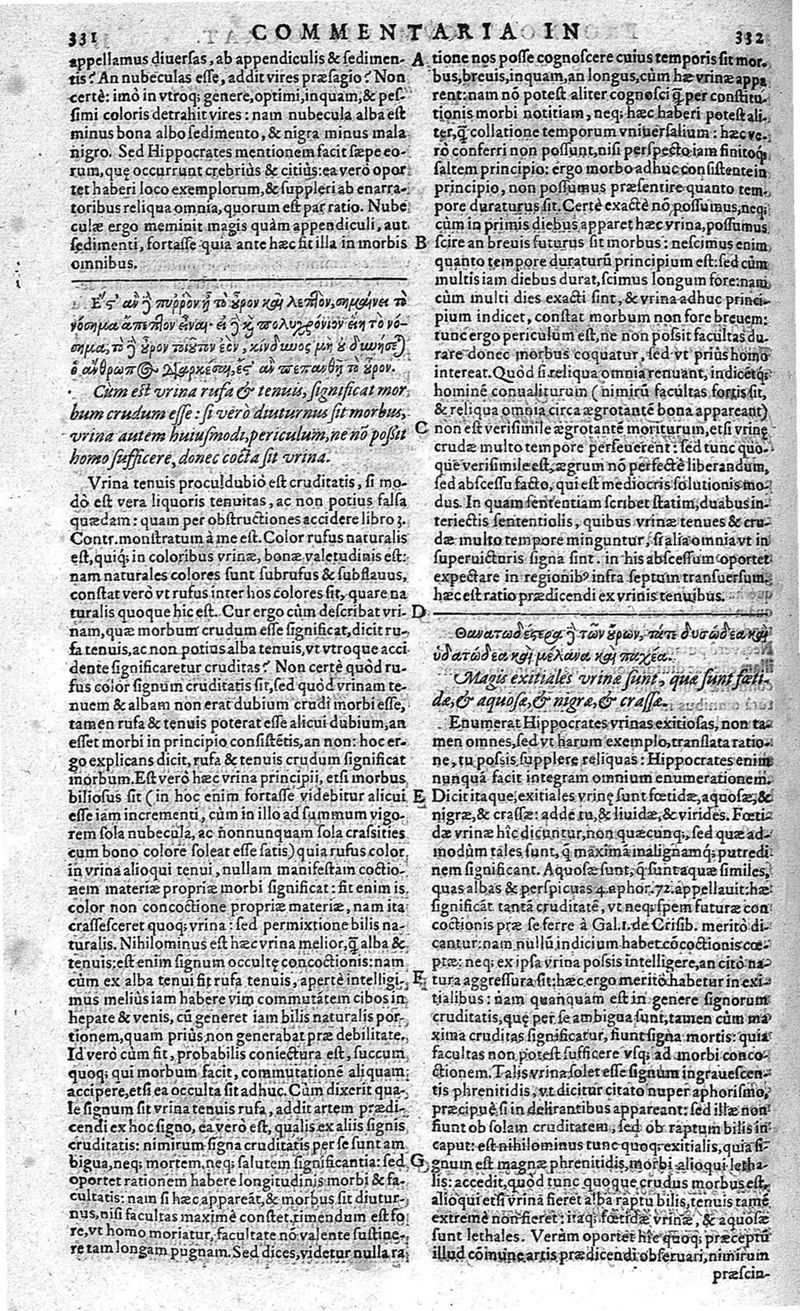 331 COMMENTARIA IN 332
appellamus diuersas, ab appendiculis & sedimen-
tis? An nubeculas esse, addit vires præsagio? Non
certè: imò in vtroq; genere, optimi, inquam, & pes-
simi coloris detrahit vires: nam nubecula alba est
minus bona albo sedimento, & nigra minus mala
nigro. Sed Hippocrates mentionem facit sæpe eo-
rum, quę occurrunt crebrius & citius: ea verò opor
tet haberi loco exemplorum, & suppleri ab enarra-
toribus reliqua omnia, quorum est par ratio. Nube
culæ ergo meminit magis quàm appendiculi, aut
sedimenti, fortasse quia ante hæc fit illa in morbis
omnibus.
Ες' ἂν ᾖ πυῤῥὸν ᾖ τὸ οὖρον καὶ λεπτὸν, σημαίνει τὸ
νόσημα ἄπεπτον εἶναι· εἰ ᾖ καὶ πολυχρόνιον εἴη τὸ νό-
σημα, τὸ ᾖ οὖρον τοιοῦτον ἐὸν, κίνδυνος μὴ οὐ δυνήσεται
ὁ ἄνθρωπος διαρκέσῃ, ἔς' ἂν πεπανθῇ τὸ οὖρον.
Cùm est vrina rufa & tenuis, significat mor
bum crudum esse: si verò diuturnus sit morbus,
vrina autem huiusmodi, periculum, ne nō possit
homo sufficere, donec cocta sit vrina.
Vrina tenuis proculdubio est cruditatis, si mo-
dò est vera liquoris tenuitas, ac non potius falsa
quædam: quam per obstructiones accidere libro 3.
Contr. monstratum à me est. Color rufus naturalis
est, quiq; in coloribus vrinæ, bonæ valetudinis est:
nam naturales colores sunt subrufus & subflauus,
constat verò vt rufus inter hos colores sit, quare na
turalis quoque hic est. Cur ergo cùm describat vri-
nam, quæ morbum crudum esse significat, dicit ru-
fa tenuis, ac non potius alba tenuis, vt vtroque acci
dente significaretur cruditas? Non certè quòd ru-
fus color signum cruditatis sit, sed quòd vrinam te-
nuem & albam non erat dubium crudi morbi esse,
tamen rufa & tenuis poterat esse alicui dubium, an
esset morbi in principio consistētis, an non: hoc er-
go explicans dicit, rufa & tenuis crudum significat
morbum. Est verò hæc vrina principii, etsi morbus
biliosus sit (in hoc enim fortasse videbitur alicui
esse iam incrementi, cùm in illo ad summum vigo-
rem sola nubecula, ac nonnunquam sola crassities
cum bono colore soleat esse satis) quia rufus color
in vrina alioqui tenui, nullam manifestam coctio-
nem materiæ propriæ morbi significat: fit enim is
color non concoctione propriæ materiæ, nam ita
crassesceret quoq; vrina: sed permixtione bilis na-
turalis. Nihilominus est hæc vrina melior, ꝗ̃ alba &
tenuis: est enim signum occultę concoctionis: nam
cùm ex alba tenui fit rufa tenuis, apertè intelligi-
mus melius iam habere vim commutātem cibos in
hepate & venis, cū generet iam bilis naturalis por-
tionem, quam prius non generabat præ debilitate.
Id verò cùm fit, probabilis coniectura est, succum
quoq; qui morbum facit, commutationē aliquam
accipere, etsi ea occulta sit adhuc. Cùm dixerit qua-
le signum sit vrina tenuis rufa, addit artem prædi-
cendi ex hoc signo, ea verò est, qualis ex aliis signis
cruditatis: nimirum signa cruditatis per se sunt am
bigua, neq; mortem, neq; salutem significantia: sed
oportet rationem habere longitudinis morbi & fa-
cultatis: nam si hæc appareāt, & morbus sit diutur-
nus, nisi facultas maximè constet, timendum est fo
re, vt homo moriatur, facultate nō valente sustine-
re tam longam pugnam. Sed dices, videtur nulla ra
A tione nos posse cognoscere cuius temporis sit mor-
bus, breuis, inquam, an longus, cùm hæ vrinæ appa
rent: nam nō potest aliter cognosci ꝗ̃ per constitu-
tionis morbi notitiam, neq; hæc haberi potest ali-
ter, ꝗ̃ collatione temporum vniuersalium: hæc ve-
rò conferri non possunt, nisi perspecto iam finitoq;
saltem principio: ergo morbo adhuc consistente in
principio, non possumus præsentire quanto tem-
pore duraturus sit. Certè exactè nō possumus, neq;
cùm in primis diebus apparet hæc vrina, possumus
B scire an breuis futurus sit morbus: nescimus enim
quanto tempore duraturū principium est: sed cùm
multis iam diebus durat, scimus longum fore: nam
cùm multi dies exacti sint, & vrina adhuc princi-
pium indicet, constat morbum non fore breuem:
tunc ergo periculum est, ne non possit facultas du-
rare donec morbus coquatur, sed vt prius homo
intereat. Quòd si reliqua omnia renuant, indicētq;
hominē conualiturum (nimirū facultas fortis sit,
& reliqua omnia circa ægrotantē bona appareant)
C non est verisimile ægrotantē moriturum, etsi vrinę
crudæ multo tempore perseuerent: sed tunc quo-
que verisimile est, ægrum nō perfectè liberandum,
sed abscessu facto, qui est mediocris solutionis mo-
dus. In quam sententiam scribet statim, duabus in-
teriectis sententiolis, quibus vrinæ tenues & cru-
dæ multo tempore minguntur, si alia omnia vt in
superuicturis signa sint. in his abscessum oportet
expectare in regionibꝰ infra septum transuersum.
hæc est ratio prædicendi ex vrinis tenuibus.
D
Θανατωδέςερα ᾖ τῶν οὔρων, τά τε δυσώδεα καὶ
ὑδατώδεα καὶ μέλανα καὶ παχέα.
Magis exitiales vrinæ sunt, quæ sunt fœti-
dæ, & aquosæ, & nigræ, & crassæ.
Enumerat Hippocrates vrinas exitiosas, non ta-
men omnes, sed vt harum exemplo, translata ratio-
ne, tu possis supplere reliquas: Hippocrates enim
nunquā facit integram omnium enumerationem.
E Dicit itaque, exitiales vrinę sunt fœtidæ, aquosæ, &
nigræ, & crassæ: adde tu, & liuidæ, & virides. Fœti-
dæ vrinæ hîc dicuntur, non quæcunq;, sed quæ ad-
modùm tales sunt, ꝗ̃ maximā malignamq; putredi
nem significant. Aquosæ sunt, ꝗ̃ sunt aquæ similes,
quas albas & perspicuas 4. aphor. 72. appellauit: hæ
significāt tantā cruditatē, vt neq; spem futuræ con
coctionis præ se ferre à Gal. 1. de Crisib. meritò di-
cantur: nam nullū indicium habet cōcoctionis cœ-
ptæ: neq; ex ipsa vrina possis intelligere, an citò na-
F tura aggressura sit: hæc ergo meritò habetur in exi-
tialibus: nam quanquam est in genere signorum
cruditatis, quę per se ambigua sunt, tamen cùm ma
xima cruditas significatur, fiunt signa mortis: quia
facultas non potest sufficere vsq; ad morbi conco-
ctionem. Talis vrina solet esse signum ingrauescen-
tis phrenitidis, vt dicitur citato nuper aphorismo,
præcipuè, si in delirantibus appareant: sed illæ non
fiunt ob solam cruditatem, sed ob raptum bilis in
caput: est nihilominus tunc quoq; exitialis, quia si-
G gnum est magnæ phrenitidis, morbi alioqui letha-
lis: accedit, quòd tunc quoque crudus morbus est,
alioqui etsi vrina fieret alba raptu bilis, tenuis tamē
extremè non fieret: itaq; fœtidæ vrinæ, & aquosæ
sunt lethales. Verùm oportet hîc quoq; præceptū
illud cōmune artis prædicendi obseruari, nimirum
præscin-